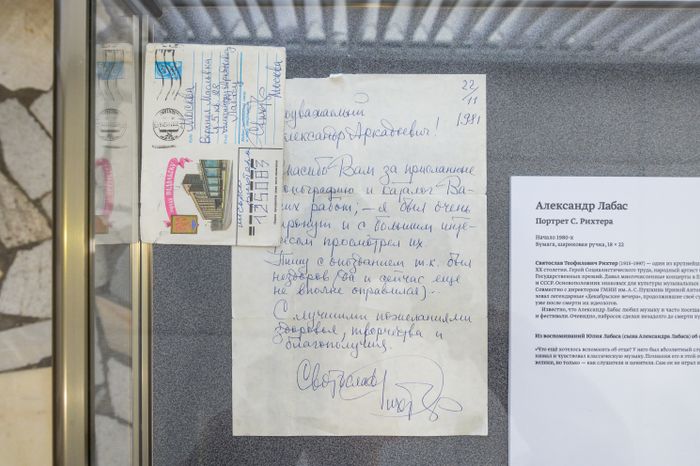 Москва
Верхняя Масловка
Москва
125083
22/11
1981
Александр Аркадьевич!
Спасибо Вам за присланные
монографию и каталог Ва-
ших работ; – я был очень
тронут и с большим инте-
ресом просмотрел их.
Пишу с опозданием т.к. был
нездоров (да и сейчас ещё
не вполне оправился).
С лучшими пожеланиями
здоровья, творчества и
благополучия.
Святослав Рихтер
Александр Лабас
Портрет С. Рихтера
Начало 1980-х
Бумага, шариковая ручка, 18 × 22
Святослав Теофилович Рихтер (1915–1997) – один из крупнейш
XX столетия. Герой Социалистического труда, народный артист
Государственных премий. Давал многочисленные концерты в
и СССР. Основоположник знаковых для культуры музыкальных
Совместно с директором ГМИИ им. А.С. Пушкина Ириной Антон
зовал легендарные «Декабрьские вечера», продолжившие своё
уже после смерти их идеологов.
Известно, что Александр Лабас любил музыку и часто посеща
и фестивали. Очевидно, набросок сделан незадолго до смерти
Из воспоминаний Юлия Лабаса (сына Александра Лабаса) об
«Что ещё хочется вспомнить об отце? У него был абсолютный слу
нимал и чувствовал классическую музыку. Познания его в этой
велики, но только — как слушателя и ценителя. Сам он не играл